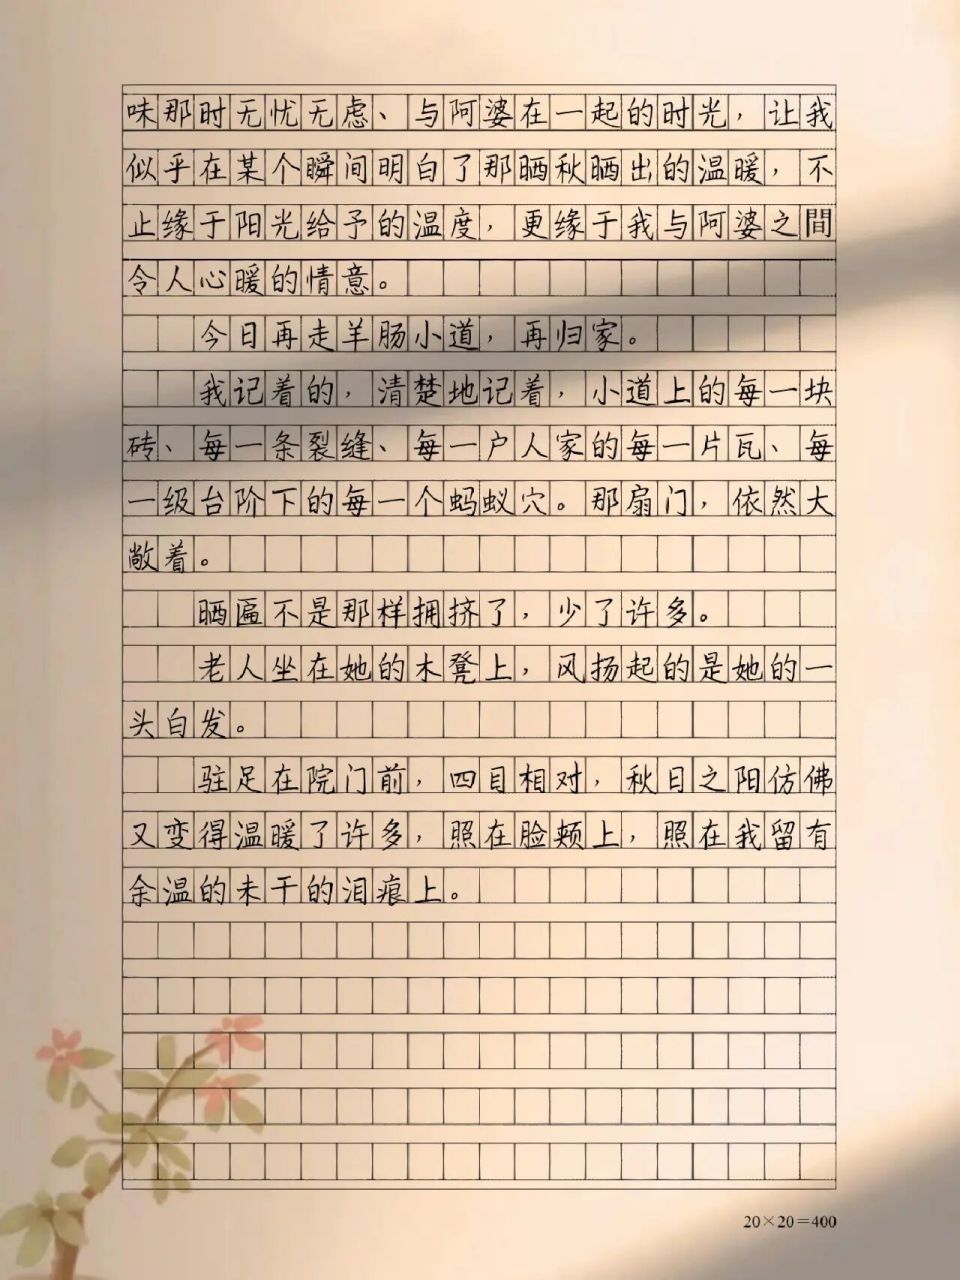 味那时无忧无虑、与阿婆在一起的时光，让我
似乎在某个瞬间明白了那晒秋晒出的温暖，不
止缘于阳光给予的温度，更缘于我与阿婆之間
令人心暖的情意。
今日再走羊肠小道，再归家。
我记着的，清楚地记着，小道上的每一块
砖、每一条裂缝、每一户人家的每一片瓦、每
一级台阶下的每一个蚂蚁穴。那扇门，依然大
敞着。
晒匾不是那样拥挤了，少了许多。
老人坐在她的木凳上，风扬起的是她的一
头白发。
驻足在院门前，四目相对，秋日之阳仿佛
又变得温暖了许多，照在脸颊上，照在我留有
余温的未干的泪痕上。
20×20=400